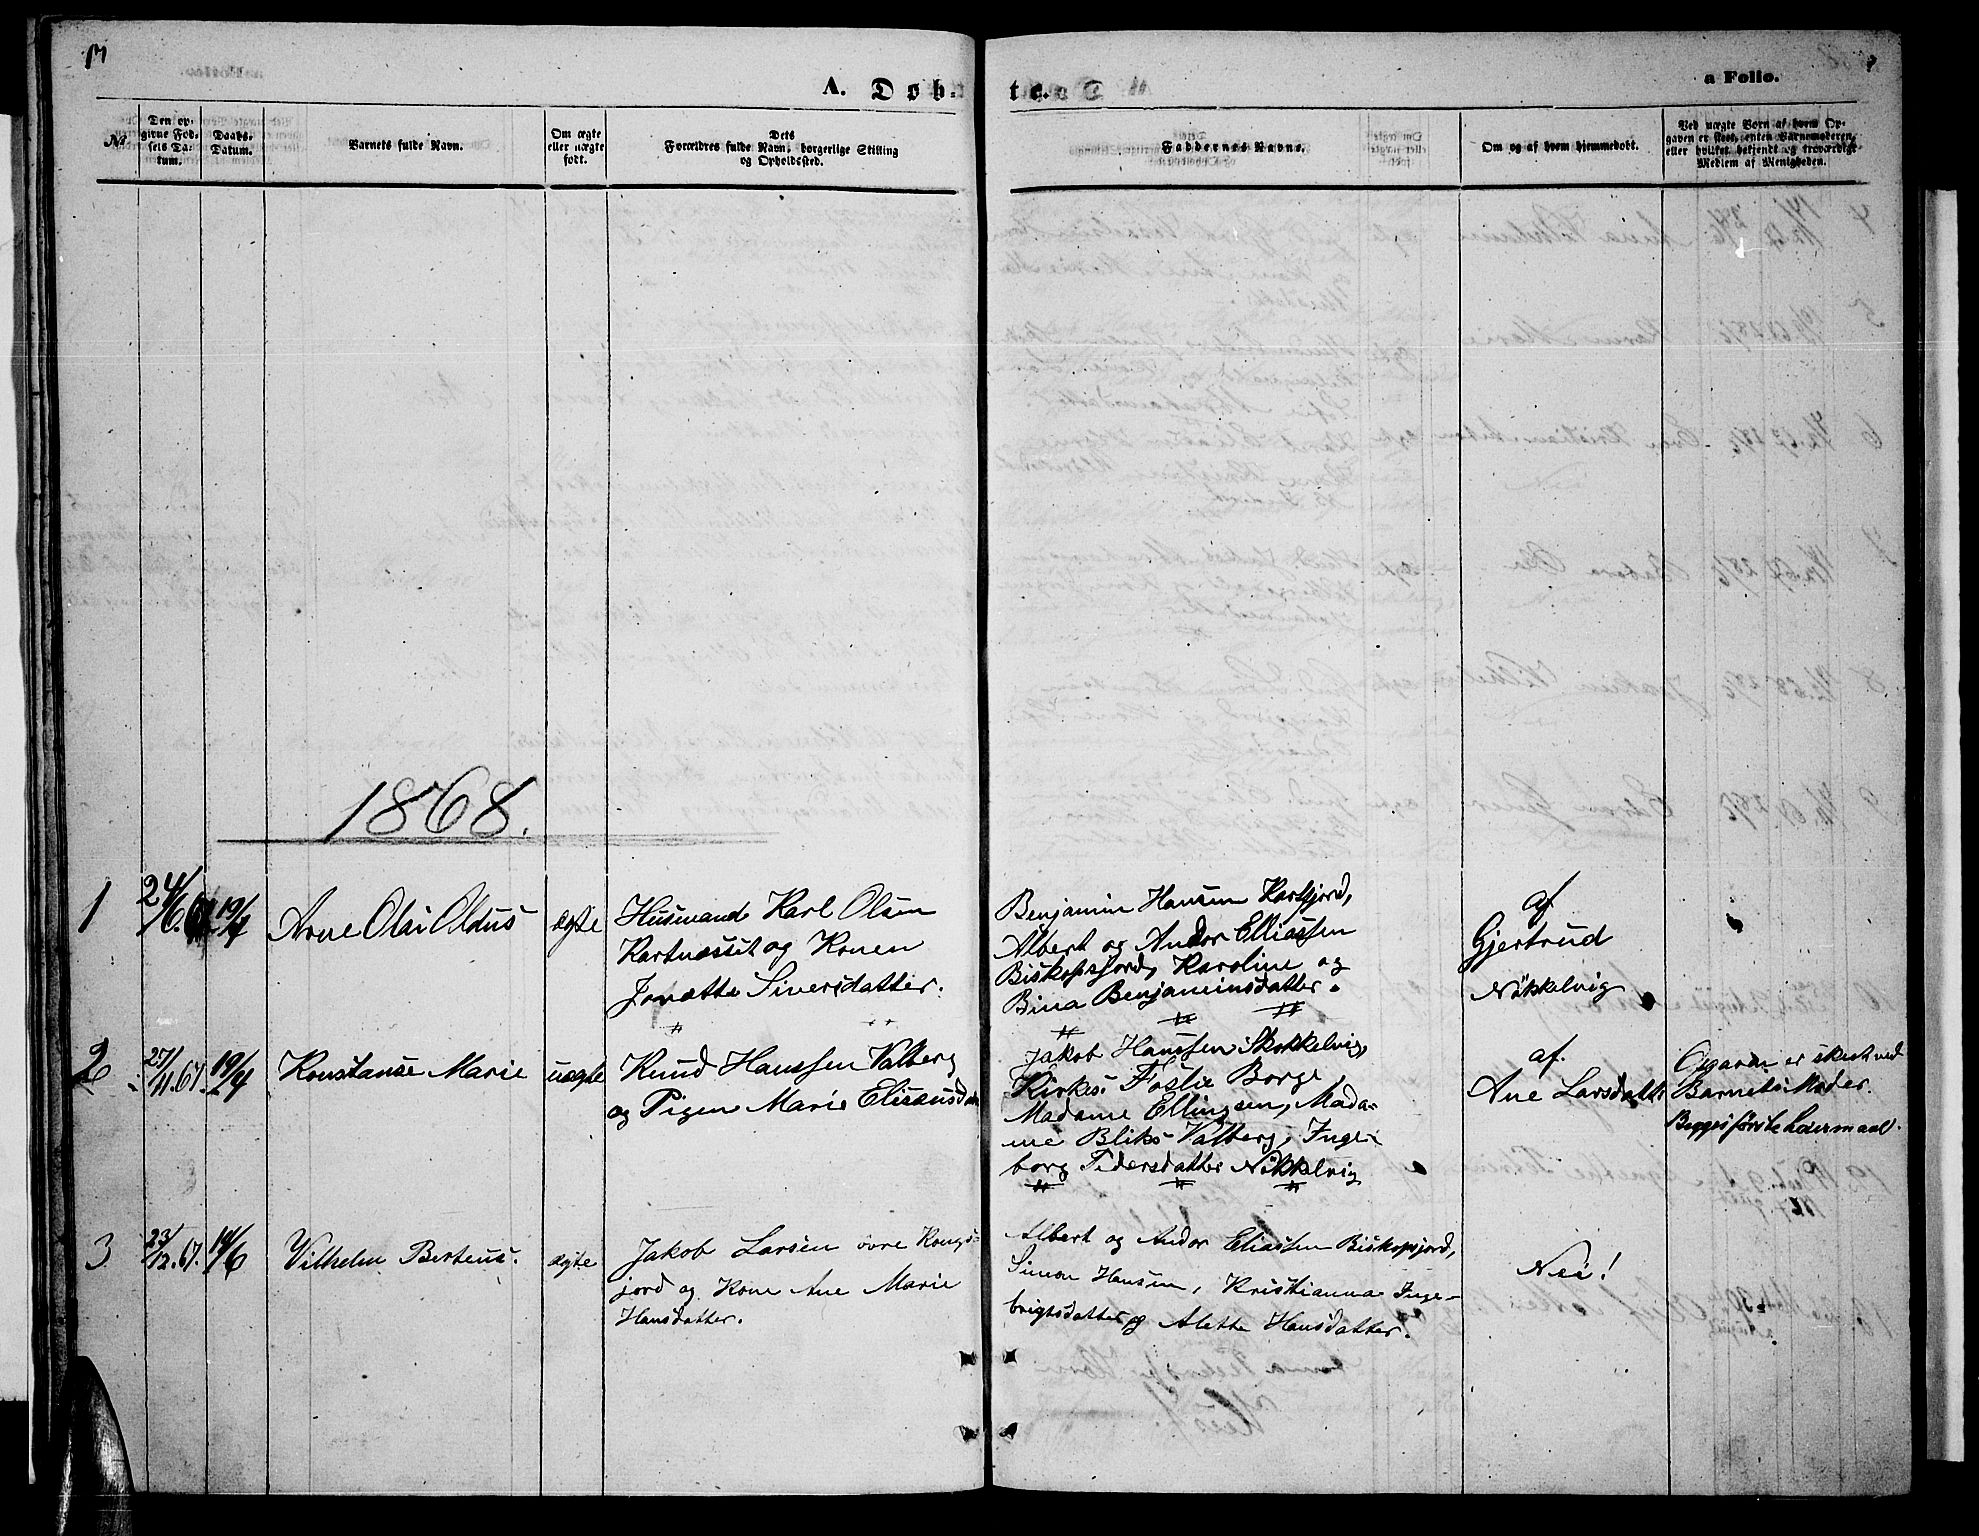 A. Døb-
te.
a Folio.
No
Den op-
girne Fød-
sels Da-
tum.
Daabs-
Datum.
Barnets fulde Navn.
Om ægte
eller uægte
født.
Dets
Forældres fulde Navn, borgerlige Stilling
og Opholdssted.
Faddernes Navne.
Om og af hvem hjemmedøbt.
Ved uægte Børn af hvem Op-
gaven er skeet, enten Barnemoderen
eder hvilket bekjendt og troværdigt
Medlem af Menigheden.
1868.
1
24/6.67
19/4
Arne Olai Oldus
ægte
Husmand Karl Olsen
Kartnæsset og Konen
Jonætte Siversdatter.
Benjamin Hansen Karlfjord,
Albert og Andor Elliassen
Biskopsfjord, Karoline og
Bina Benjaminsdatter.
af
Gjertrud
Nökkelvig
2
27/11.67.
19/4
Konstanse Marie
uægte
Knud Hanssen Valberg
og Pigen Marie Eliseusdatter
Jakob Hanssen Nökkelvig,
Kirkes. Foslie Borge,
Madame Ellingsen, Mada-
me Bliks Valberg, Inge-
borg Pedersdatter Nökkelvig
af.
Ane Larsdatter
Opgaven er skeet ved
Barnets Moder.
Begges förste Leiermaal.
3
23/12.67.
14/6
Vilhelm Berteus.
ægte
Jakob Larsen övre Kongs-
jord og Kone Ane Marie
Hansdatter.
Albert og Andor Eliassen Biskopsjord,
Simon Hansen, Kristianna Inge-
brigtsdatter og Alette Hansdatter.
Nei!